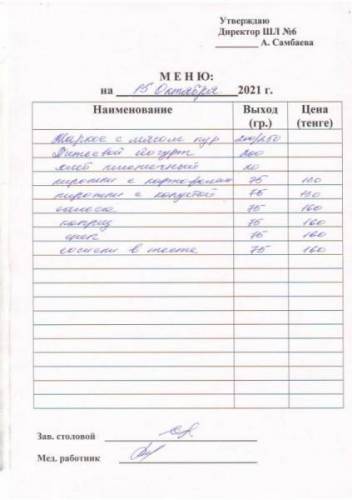 Утверждаю
Директор ШЛ №6
А. Самбаева
М Е Н Ю:
на 15 Октября 2021 г.
Наименование Выход (гр.) Цена (тенге)
Жаркое с мясом кур 200/250
Питьевой йогурт 200
хлеб пшеничный
пирожки с картофелем 75 100
пирожки с капустой 75 100
самоса 75 160
каприз 75 160
75 160
сосиски в тесте 75 160
Зав. столовой
Мед. работник